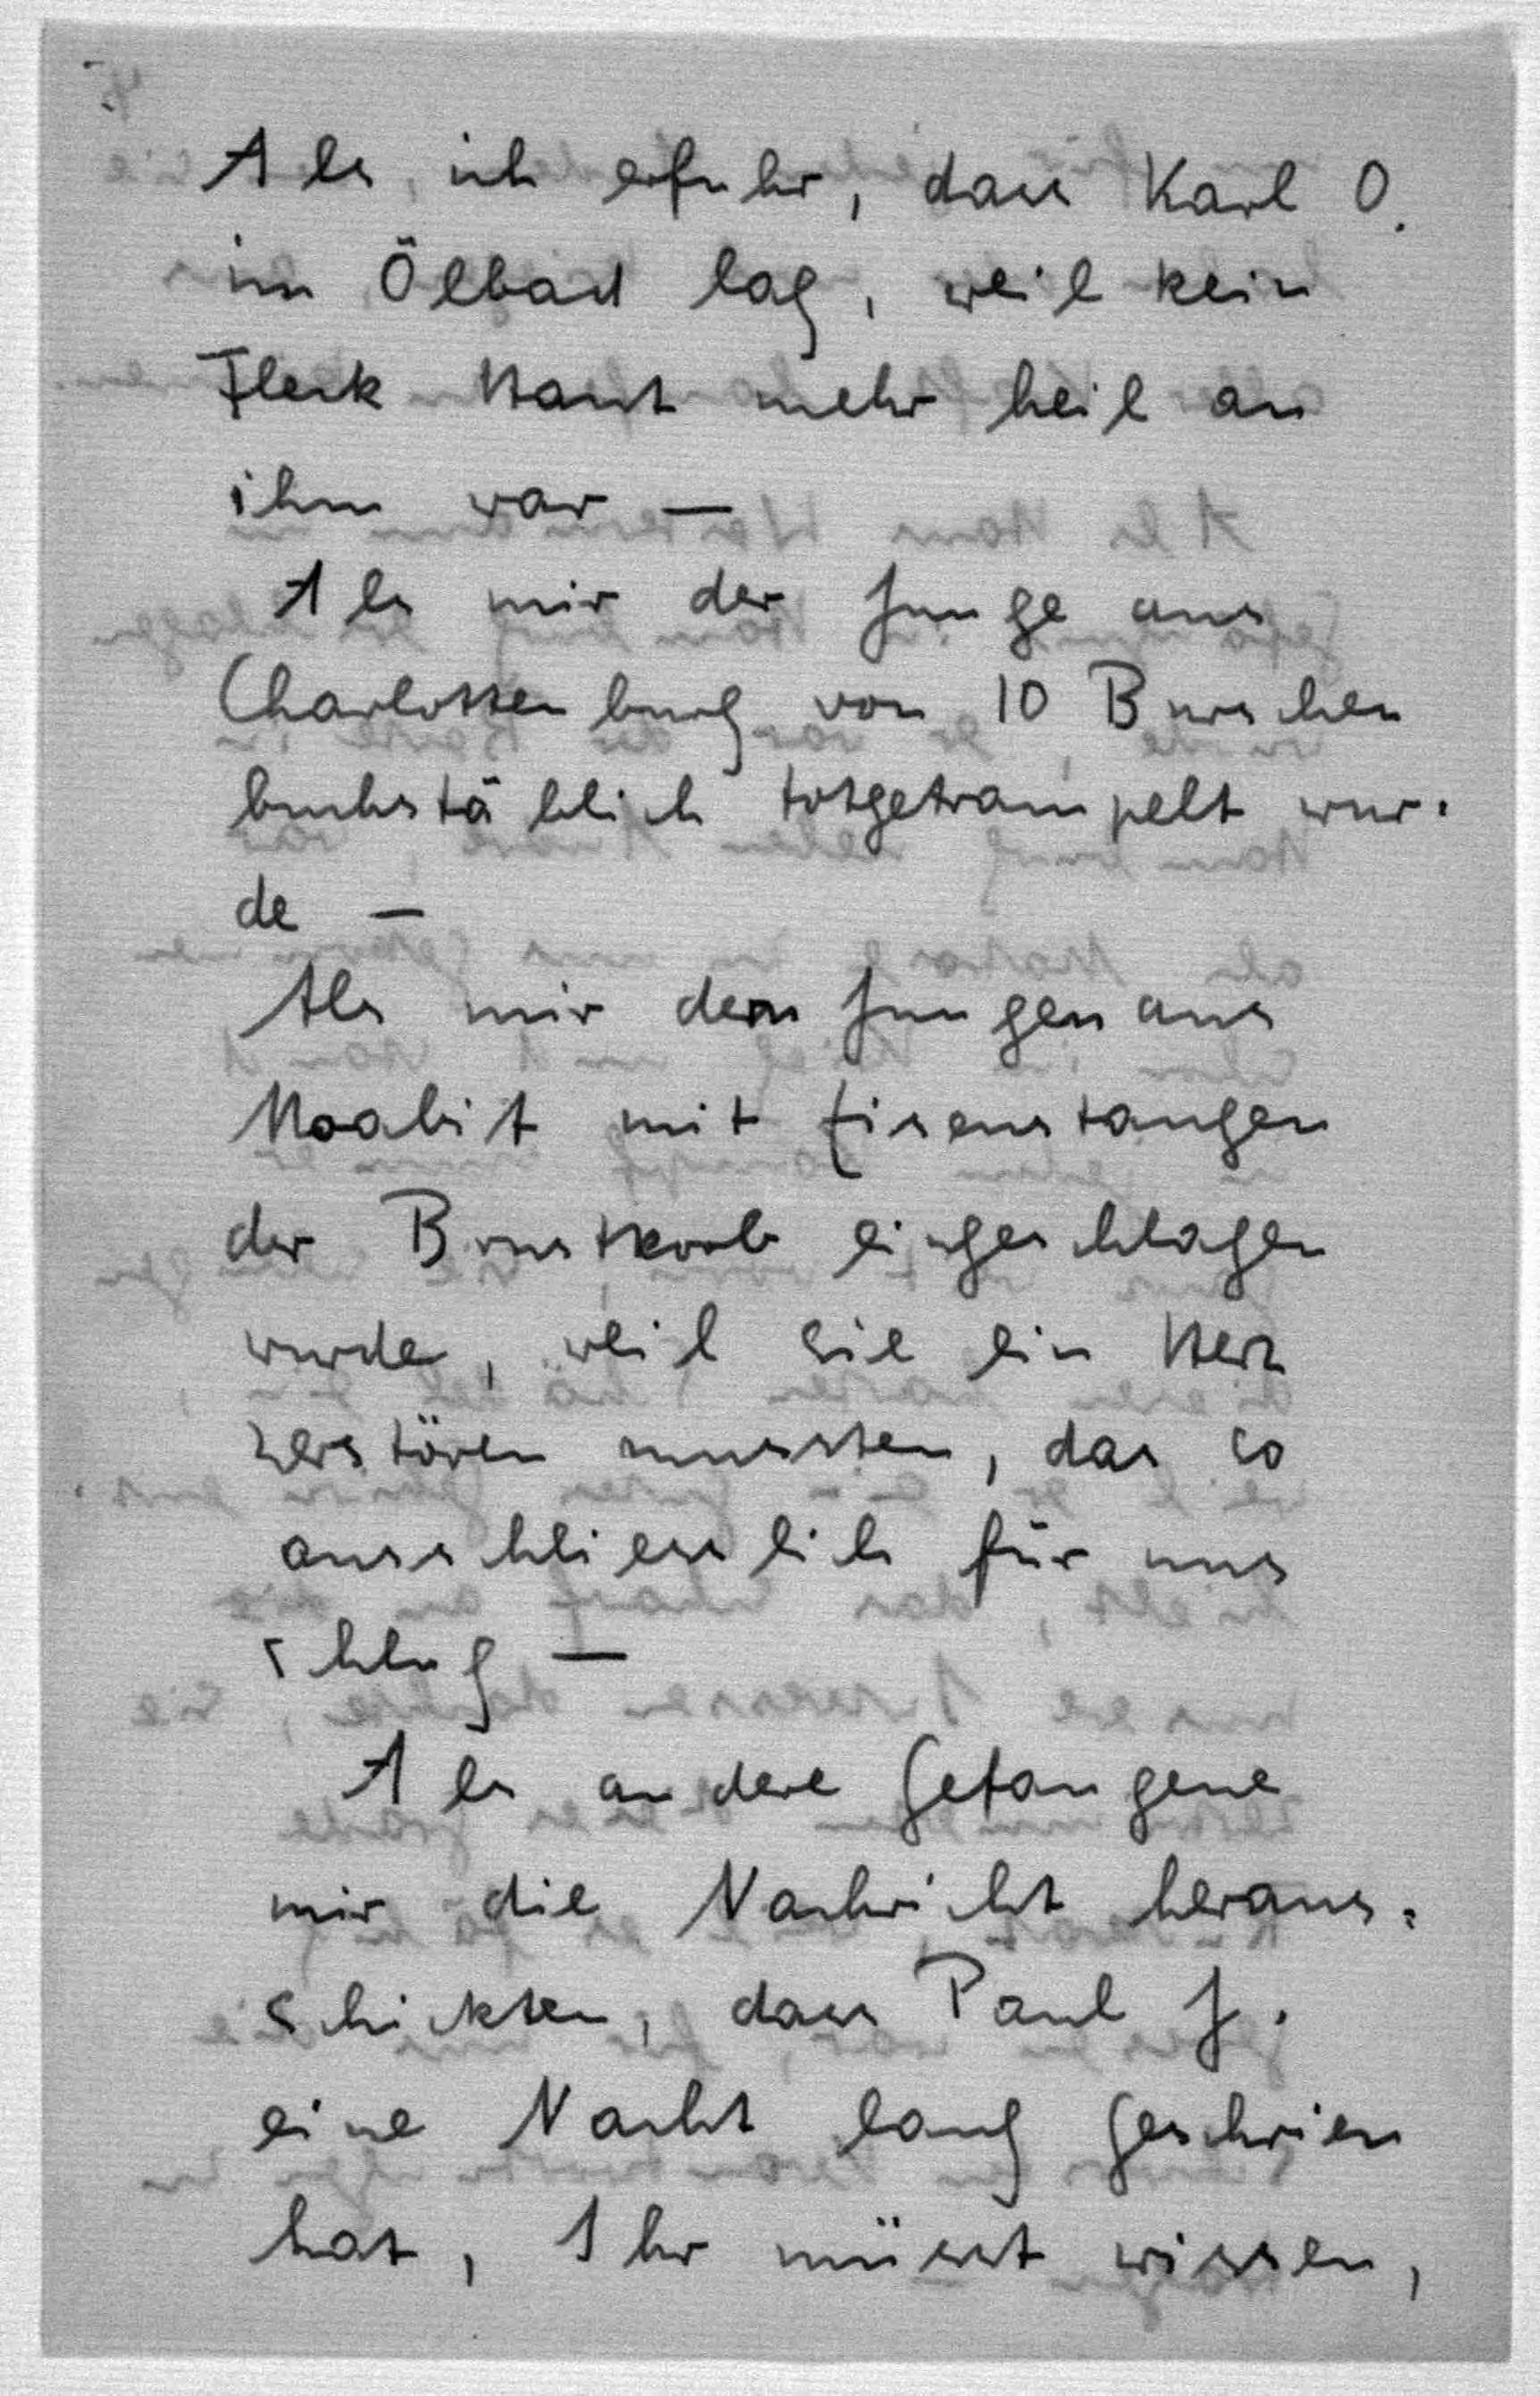 Als ich erfuhr, dass Karl O.
im Ölbad lag, weil kein
Fleck Haut mehr heil an
ihm war —
Als mir der Junge aus
Charlottenburg von 10 Burschen
buchstäblich totgetrampelt wur-
de —
Als mir dem Jungen aus
Moabit mit Eisenstangen
der Brustkorb eingeschlagen
wurde, weil sie ein Herz
zerstören mussten, das so
ausschliesslich für uns
schlug —
Als andere Gefangene
mir die Nachricht heraus-
schickten, dass Paul J.
eine Nacht lang geschrien
hat, Ihr müsst wissen,